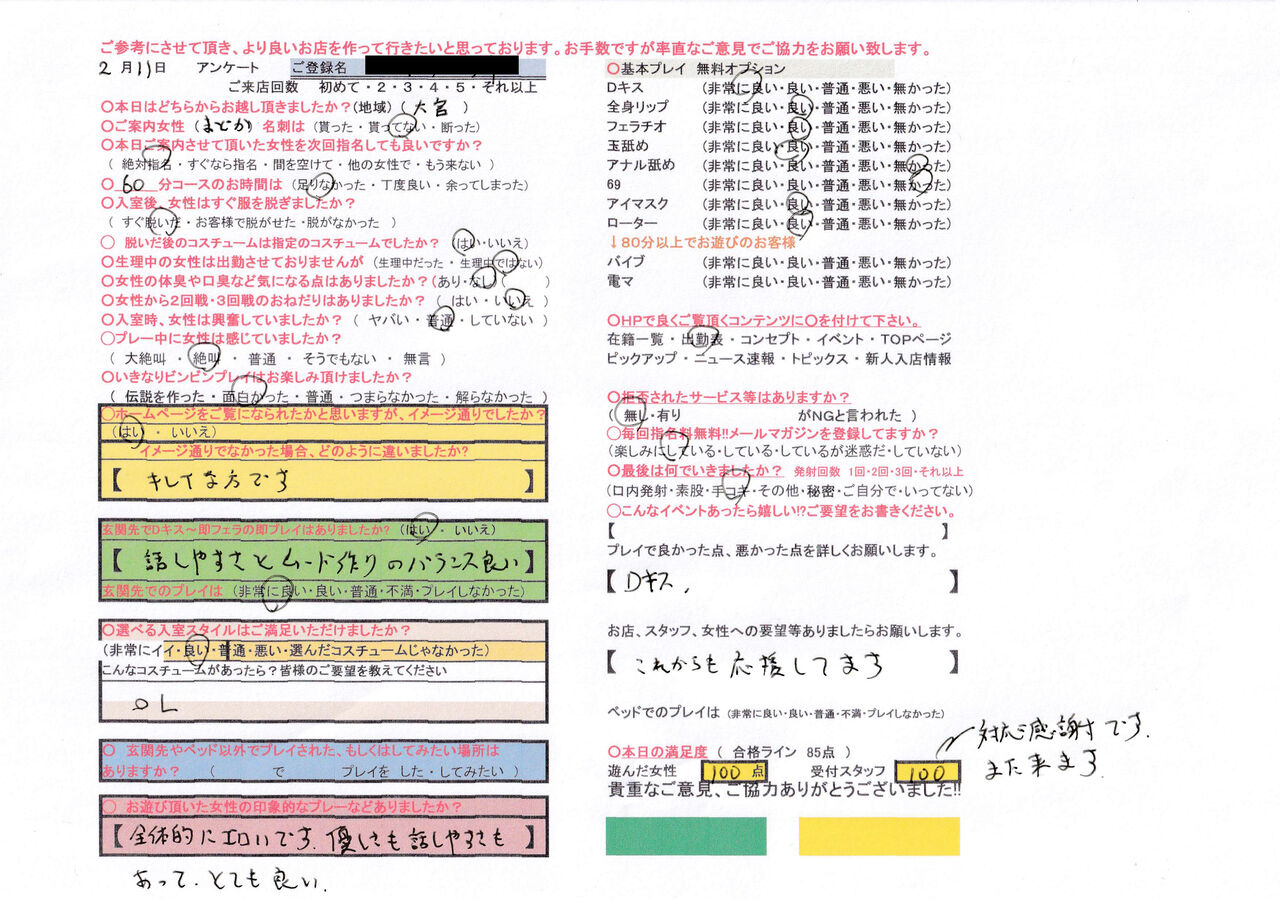 ご参考にさせて頂き、より良いお店を作って行きたいと思っております。お手数ですが率直なご意見でご協力をお願い致します。
2月11日 アンケート ご登録名
ご来店回数 初めて・2・3・4・5・それ以上
〇本日はどちらからお越し頂きましたか？(地域) ( 大宮 )
〇ご案内女性 (まどか) 名刺は (貰った・貰ってない・断った)
〇本日ご案内させて頂いた女性を次回指名しても良いですか？
( 絶対指名・すぐなら指名・間を空けて・他の女性で・もう来ない )
〇 60 分コースのお時間は (足りなかった・丁度良い・余ってしまった)
〇入室後、女性はすぐ服を脱ぎましたか？
( すぐ脱いだ・お客様で脱がせた・脱がなかった )
〇 脱いだ後のコスチュームは指定のコスチュームでしたか？ (はい・いいえ)
〇生理中の女性は出勤させておりませんが (生理中だった・生理中ではない)
〇女性の体臭や口臭など気になる点はありましたか？(あり・なし ( )
〇女性から2回戦・3回戦のおねだりはありましたか？ ( はい・いいえ )
〇入室時、女性は興奮していましたか？ ( ヤバい・普通・していない )
〇プレー中に女性は感じていましたか？
( 大絶叫 ・ 絶叫 ・ 普通 ・ そうでもない ・ 無言 )
〇いきなりビンビンプレイはお楽しみ頂けましたか？
( 伝説を作った・面白かった・普通・つまらなかった・解らなかった )
〇ホームページをご覧になられたかと思いますが、イメージ通りでしたか？
(はい ・ いいえ)
イメージ通りでなかった場合、どのように違いましたか?
【 キレイな方です 】
玄関先でDキス～即フェラの即プレイはありましたか? (はい ・ いいえ)
【 話しやすさとムード作りのバランス良い 】
玄関先でのプレイは (非常に良い・良い・普通・不満・プレイしなかった)
〇選べる入室スタイルはご満足いただけましたか？
(非常にイイ・良い・普通・悪い・選んだコスチュームじゃなかった)
こんなコスチュームがあったら？皆様のご要望を教えてください
OL
〇 玄関先やベッド以外でプレイされた、もしくはしてみたい場所は
ありますか？ ( で プレイを した・してみたい )
〇 お遊び頂いた女性の印象的なプレーなどありましたか？
【全体的にエロいです. 優しさも話しやすさも 】
あって、とても良い.
〇基本プレイ 無料オプション
Dキス (非常に良い・良い・普通・悪い・無かった)
全身リップ (非常に良い・良い・普通・悪い・無かった)
フェラチオ (非常に良い・良い・普通・悪い・無かった)
玉舐め (非常に良い・良い・普通・悪い・無かった)
アナル舐め (非常に良い・良い・普通・悪い・無かった)
69 (非常に良い・良い・普通・悪い・無かった)
アイマスク (非常に良い・良い・普通・悪い・無かった)
ローター (非常に良い・良い・普通・悪い・無かった)
↓80分以上でお遊びのお客様
バイブ (非常に良い・良い・普通・悪い・無かった)
電マ (非常に良い・良い・普通・悪い・無かった)
〇HPで良くご覧頂くコンテンツに〇を付けて下さい。
在籍一覧・出勤表・コンセプト・イベント・TOPページ
ピックアップ・ニュース速報・トピックス・新人入店情報
〇拒否されたサービス等はありますか？
( 無し・有り がNGと言われた )
〇毎回指名料無料!!メールマガジンを登録してますか？
(楽しみにしている・している・しているが迷惑だ・していない)
〇最後は何でいきましたか？ 発射回数 1回・2回・3回・それ以上
(口内発射・素股・手コキ・その他・秘密・ご自分で・いってない)
〇こんなイベントあったら嬉しい!?ご要望をお書きください。
【 】
プレイで良かった点、悪かった点を詳しくお願いします。
【 Dキス. 】
お店、スタッフ、女性への要望等ありましたらお願いします。
【 これからも応援してます 】
ベッドでのプレイは (非常に良い・良い・普通・不満・プレイしなかった)
〇本日の満足度 ( 合格ライン 85点 )
遊んだ女性 100点 受付スタッフ 100
対応に感謝です.
また来ます.
貴重なご意見、ご協力ありがとうございました!!